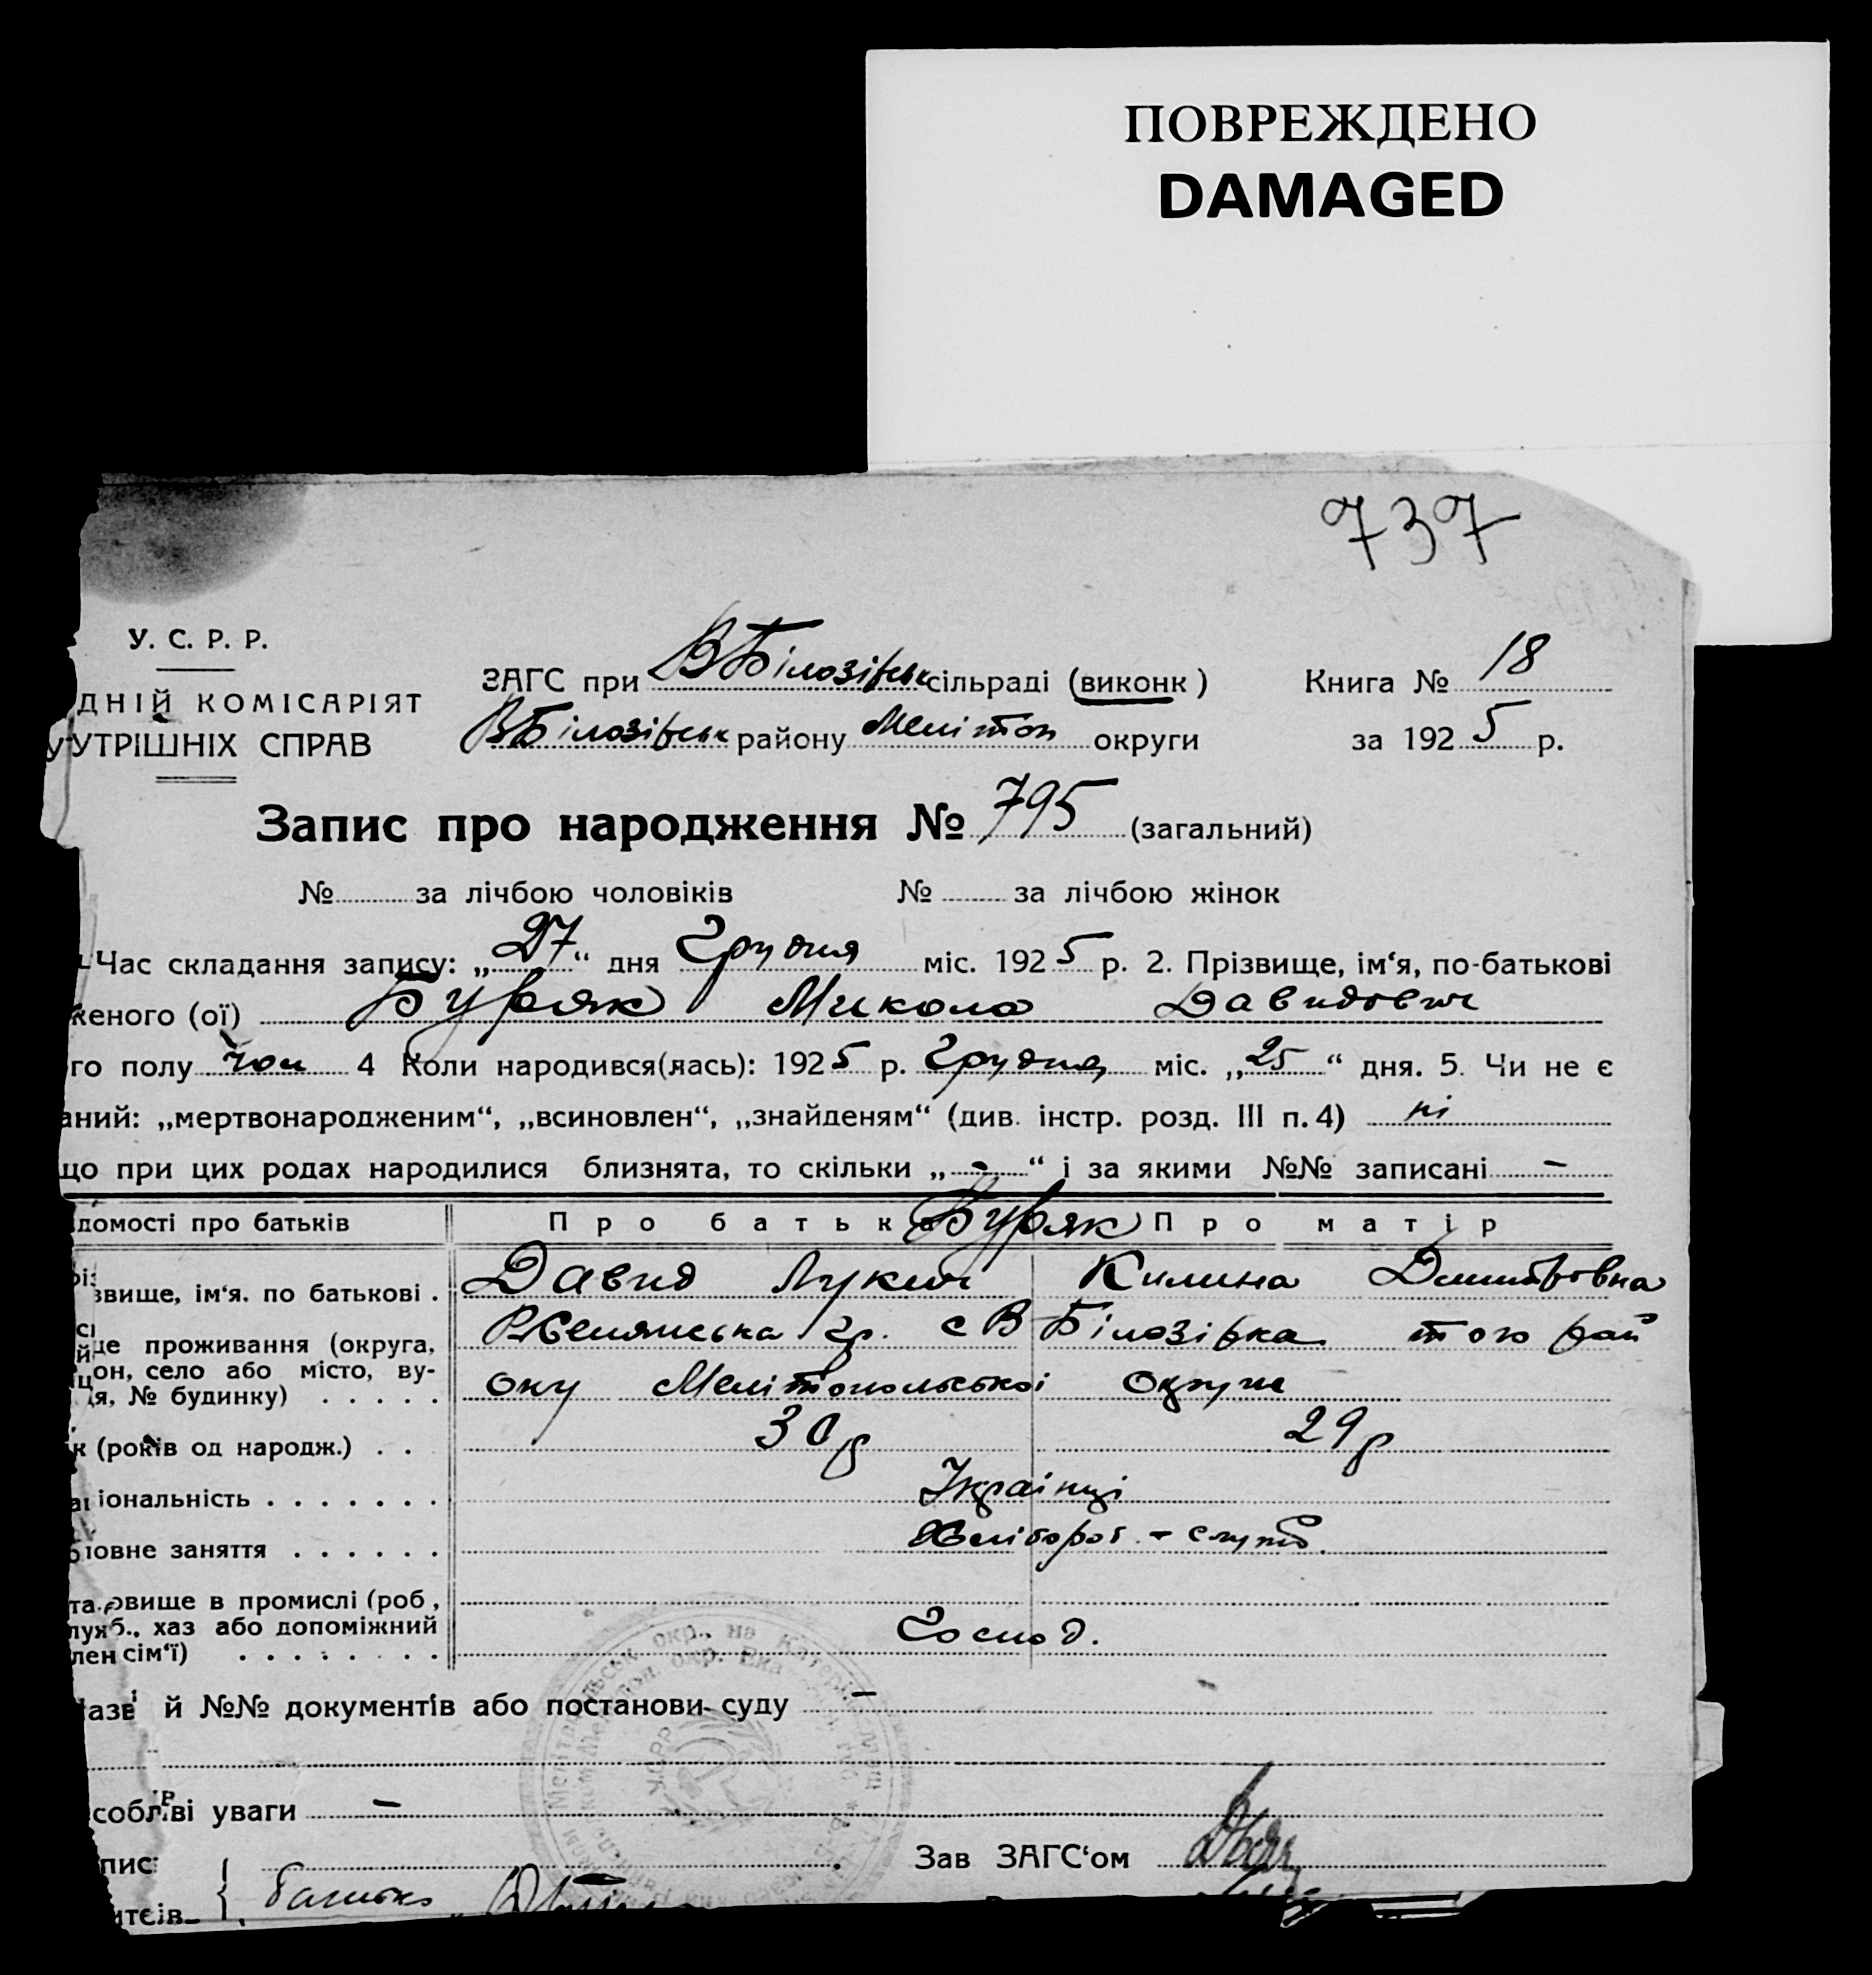 ПОВРЕЖДЕНО
DAMAGED
737
У. С. Р. Р.
ДНІЙ КОМІСАРІЯТ
УТРІШНІХ СПРАВ
ЗАГС при ВБілозівськ сільраді (виконк) Книга № 18
ВБілозівськ району Мелітоп округи за 1925 р.
Запис про народження № 795 (загальний)
№ за лічбою чоловіків № за лічбою жінок
Час складання запису: „27“ дня Грудня міс. 1925 р. 2. Прізвище, ім‘я, по-батькові
женого (ої) Буряк Микола Давидович
го полу чол 4 Коли народився(лась): 1925 р. Грудня міс. „25“ дня. 5. Чи не є
аний: „мертвонародженим“, „всиновлен“, „знайденям“ (див. інстр. розд. III п. 4) ні
що при цих родах народилися близнята, то скільки „-“ і за якими №№ записані –
домості про батьків Про батька Буряк Про матір
звище, ім‘я. по батькові . Давид Лукич Килина Дмитровна
це проживання (округа, гр. с В Білозірка того рай
он, село або місто, ву-
я, № будинку) . . . . . ону Мелітопольської округи
к (років од народж.) . . 30 р 29 р
іональність . . . . . . . Українці
овне заняття . . . . . . Хлібороб. -
та овище в промислі (роб,
луж б., хаз або допоміжний Господ.
лен сім‘ї) . . . . . . . .
азв й №№ документів або постанови суду –
собл ві уваги –
пис Зав ЗАГС‘ом
итєів батько